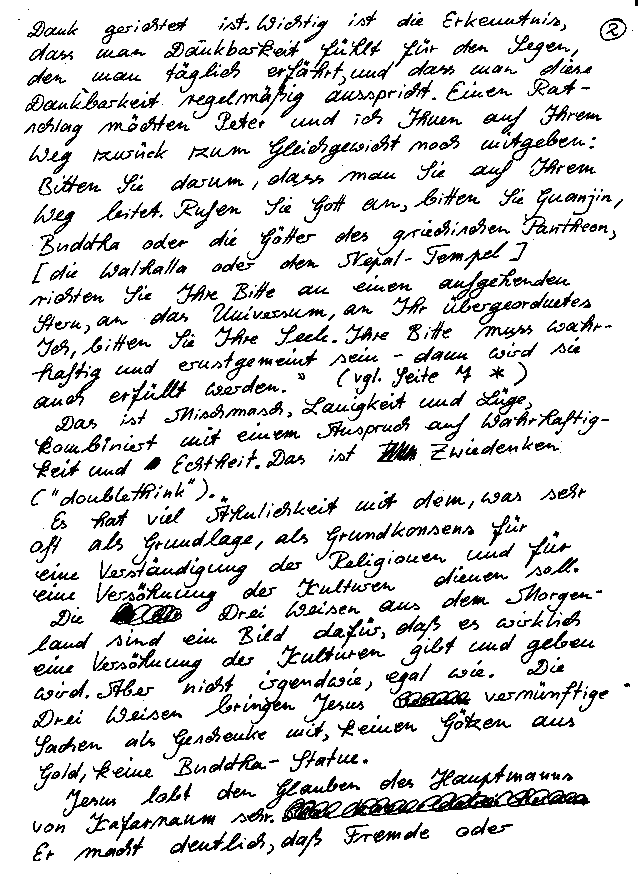 Dank gerichtet ist. Wichtig ist die Erkenntnis,
②
dass man Dankbarkeit fühlt für den Segen,
den man täglich erfährt, und dass man diese
Dankbarkeit regelmäßig ausspricht. Einen Rat-
schlag möchten Peter und ich Ihnen auf Ihrem
Weg zurück zum Gleichgewicht noch mitgeben:
Bitten Sie darum, dass man Sie auf Ihrem
Weg leitet. Rufen Sie Gott an, bitten Sie Guanjin,
Buddha oder die Götter des griechischen Pantheon,
[die Walhalla oder den Nepal-Tempel]
richten Sie Ihre Bitte an einen aufgehenden
Stern, an das Universum, an Ihr übergeordnetes
Ich, bitten Sie Ihre Seele. Ihre Bitte muss wahr-
haftig und ernstgemeint sein - dann wird sie
auch erfüllt werden." (vgl. Seite 7 *)
Das ist Mischmasch, Lauigkeit und Lüge,
kombiniert mit einem Anspruch auf Wahrhaftig-
keit und Echtheit. Das ist Zwiedenken
("doublethink").
Es hat viel Ähnlichkeit mit dem, was sehr
oft als Grundlage, als Grundkonsens für
eine Verständigung der Religionen und für
eine Versöhnung der Kulturen dienen soll.
Die Drei Weisen aus dem Morgen-
land sind ein Bild dafür, daß es wirklich
eine Versöhnung der Kulturen gibt und geben
wird. Aber nicht irgendwie, egal wie. Die
Drei Weisen bringen Jesus vernünftige
Sachen als Geschenke mit, keinen Götzen aus
Gold, keine Buddha-Statue.
Jesus lobt den Glauben des Hauptmanns
von Kafarnaum sehr.
Er macht deutlich, daß Fremde oder